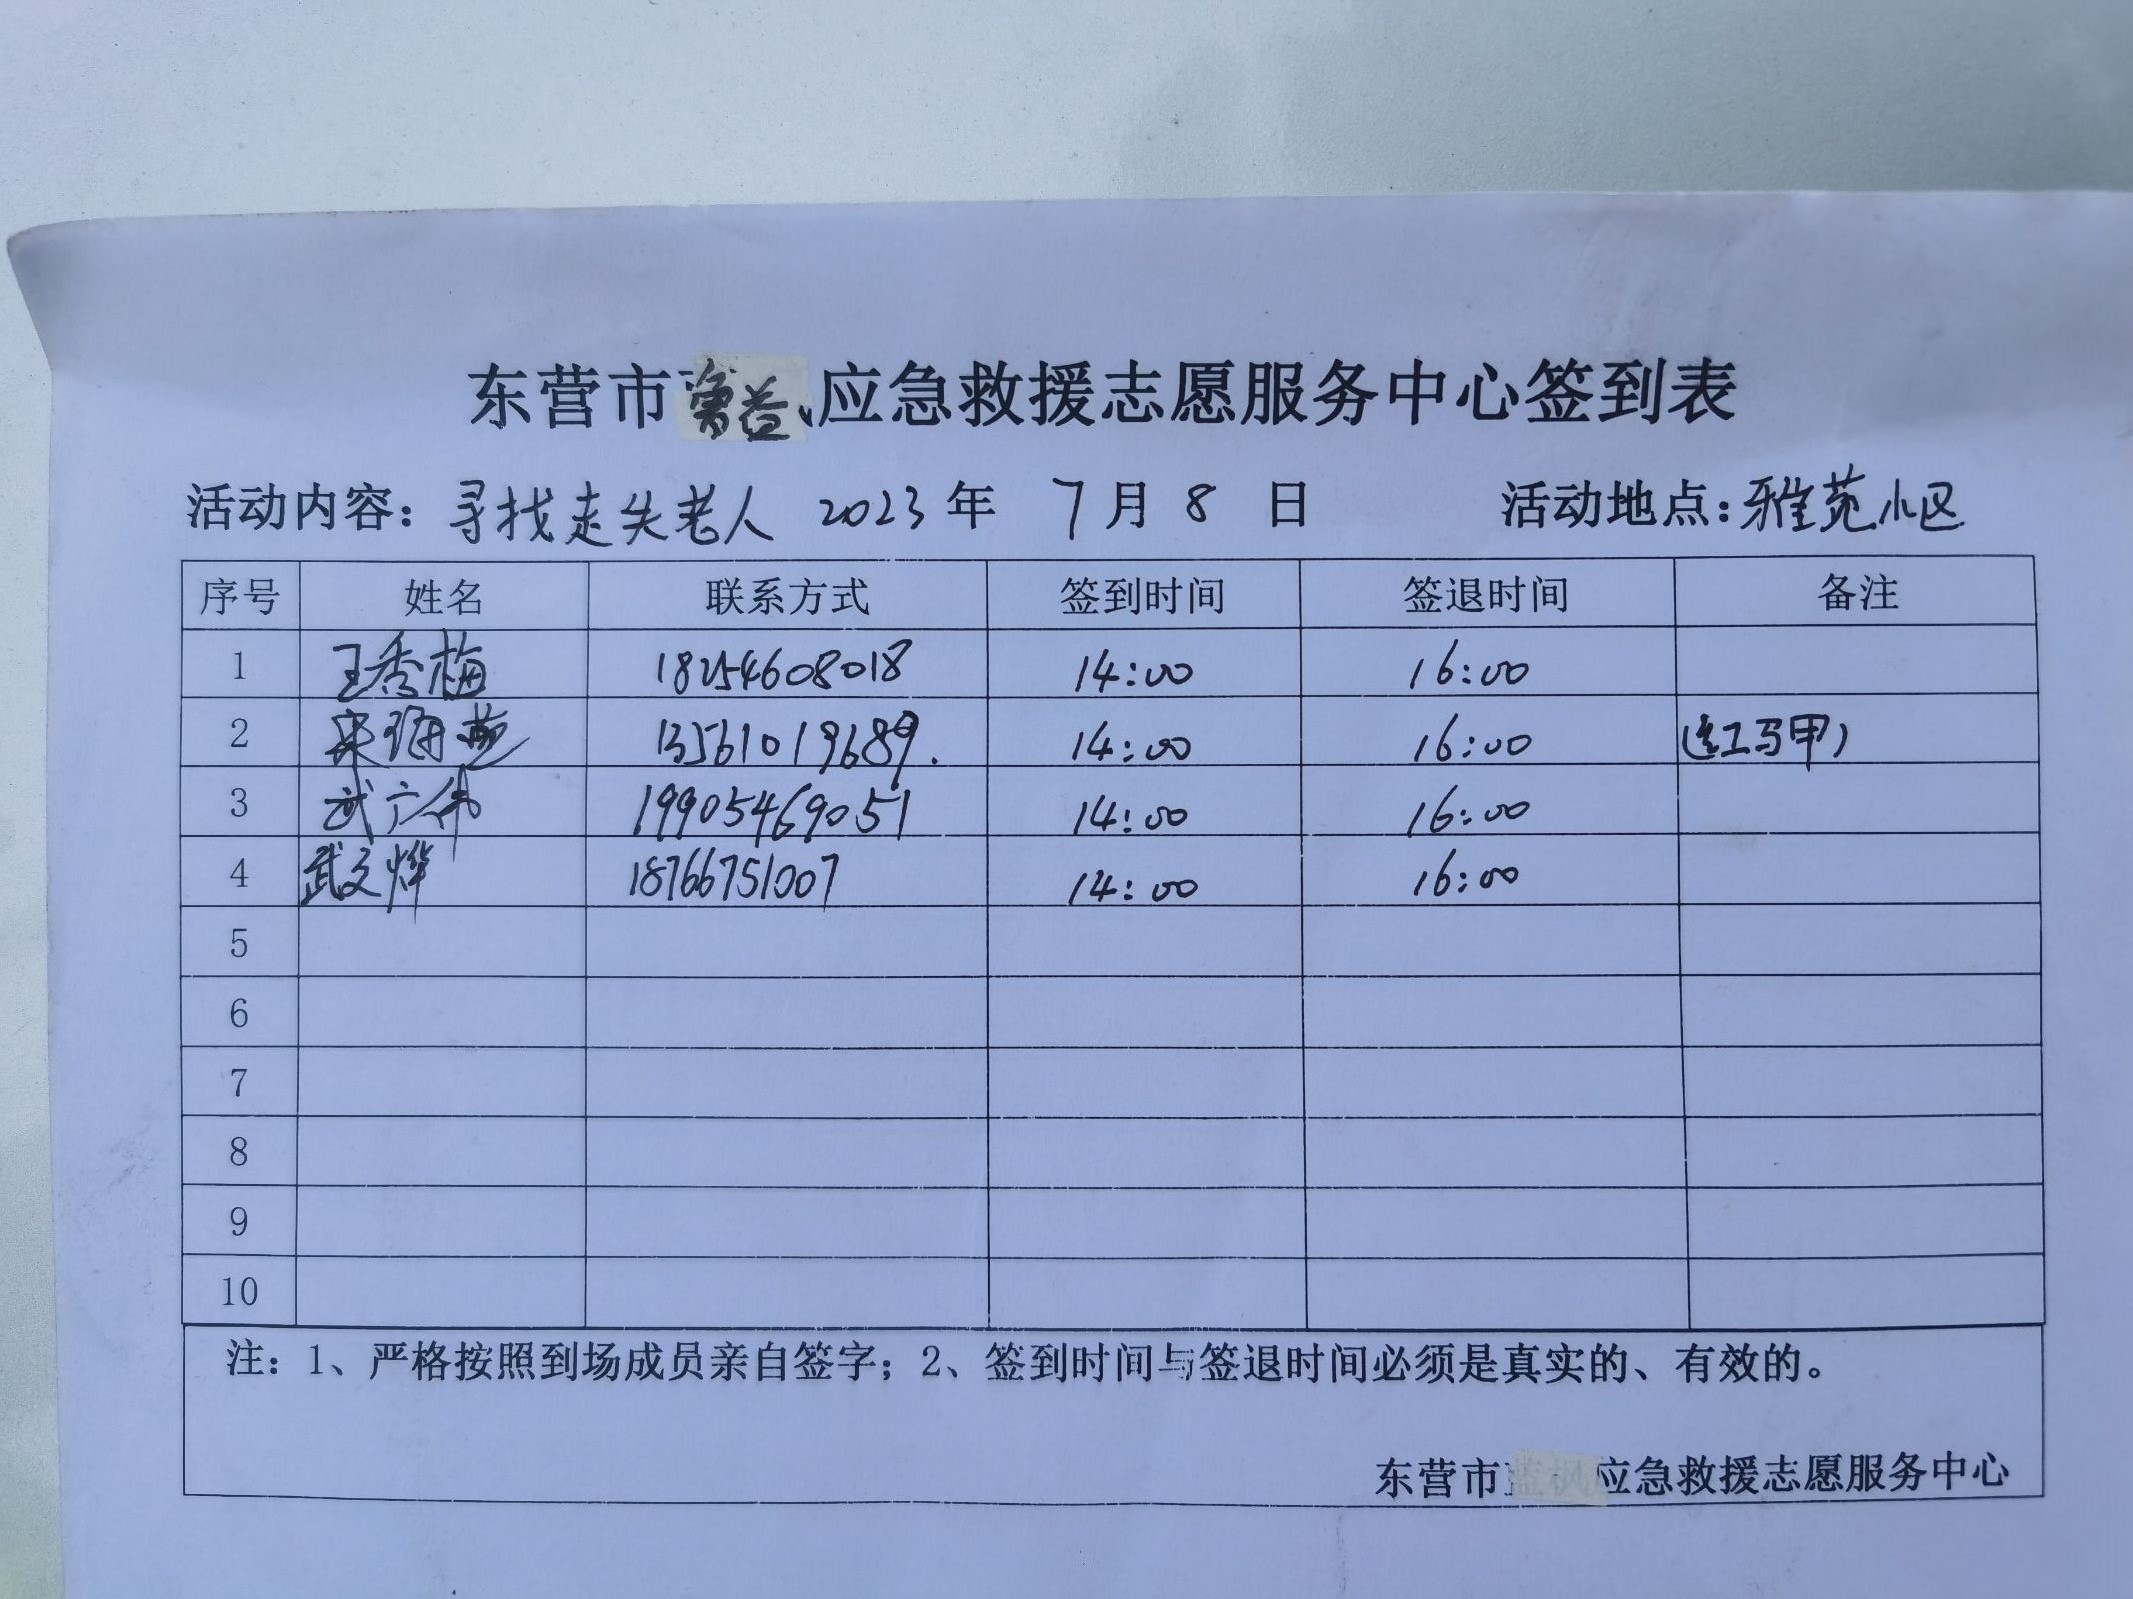 东营市鲁益应急救援志愿服务中心签到表
活动内容：寻找走失老人 2023年 7月 8 日 活动地点：雅苑小区
序号 姓名 联系方式 签到时间 签退时间 备注
1 王秀梅 18254608018 14:00 16:00
2 宋珊燕 13561019689. 14:00 16:00 (红马甲)
3 武广伟 19905469051 14:00 16:00
4 武文烨 18766751007 14:00 16:00
5
6
7
8
9
10
注：1、严格按照到场成员亲自签字；2、签到时间与签退时间必须是真实的、有效的。
东营市 应急救援志愿服务中心